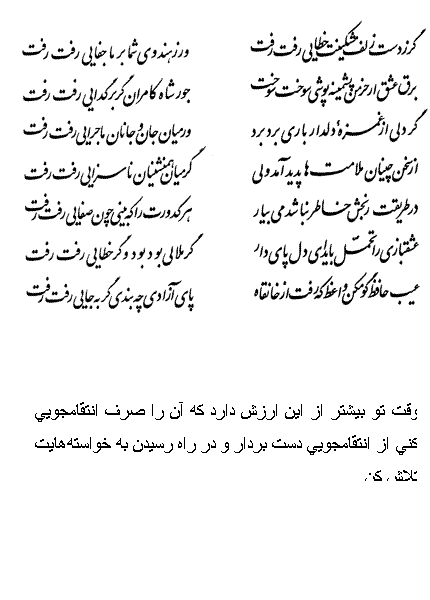 گر ز دست زلف مشکینت خطایی رفت رفت ور ز هندوی شما بر ما جفایی رفت رفت
برق عشق ار خرمن پشمینه پوشی سوخت سوخت جور شاه کامران گر بر گدایی رفت رفت
گر دلی از غمزهٔ دلدار باری برد برد ور میان جان و جانان ماجرایی رفت رفت
از سخن چینان ملامت‌ها پدید آمد ولی گر میان همنشینان ناسزایی رفت رفت
در طریقت رنجش خاطر نباشد می بیار هر کدورت را که بینی چون صفایی رفت رفت
عشقبازی را تحمل باید ای دل پای دار گر ملالی بود بود و گر خطایی رفت رفت
عیب حافظ گو مکن واعظ که رفت از خانقاه پای آزادی چه بندی گر به جایی رفت رفت
وقت تو بیشتر از این ارزش دارد که آن را صرف انتقامجويي
كني از انتقامجويي دست بردار و در راه رسیدن به خواسته‌هایت
تلاش کن